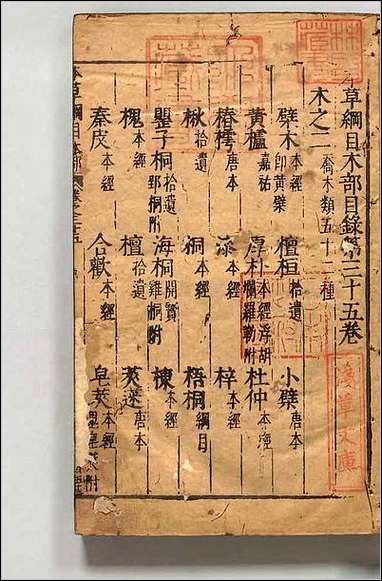 草綱目木部目錄第三十五卷
木之二 喬木類五十二種
檗木 本經 即黃檗 檀桓 拾遺 小檗 唐本
黃櫨 嘉祐 厚朴 本經 浮胡欄羅勒附 杜仲 本經
椿樗 唐本 漆 本經 梓 本經
楸 拾遺 桐 本經 梧桐 綱目
罌子桐 拾遺 郅桐附 海桐 開寶 雞桐附 楝 本經
槐 本經 檀 拾遺 莢蒾 唐本
秦皮 本經 合歡 本經 皂莢 本經 附
草綱目木部
淺草文庫